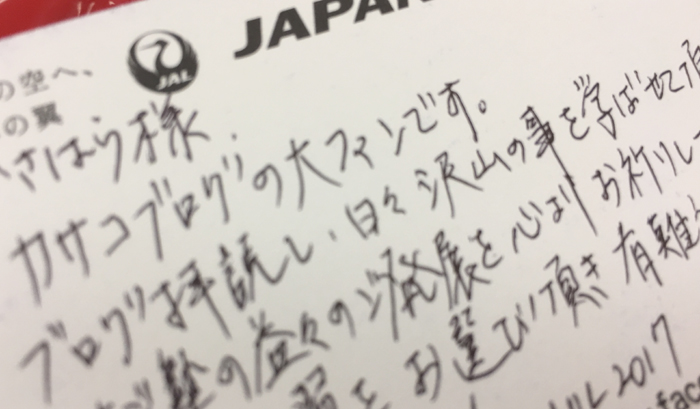 JAPAN
の空へ、
の翼
JAL
さはら様.
カサコブログの大ファンです。
ブログ拝読し、日々沢山の事を学ばせて頂
の益々のご発展を心よりお祈りし
をお選び頂き有難
2017